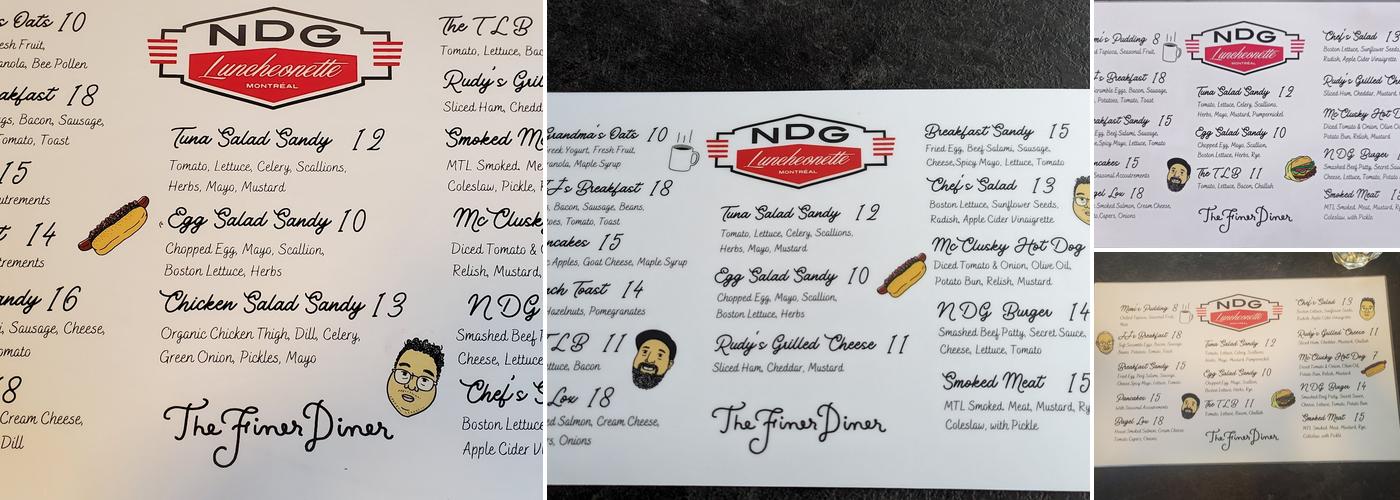 Oats 10
Fresh Fruit,
Bee Pollen
18
Bacon, Sausage,
Tomato, Toast
15
14
16
Sausage, Cheese,
18
Cream Cheese,
Dill
NDG
Luncheonette
MONTRÉAL
Tuna Salad Sandy 12
Tomato, Lettuce, Celery, Scallions,
Herbs, Mayo, Mustard
Egg Salad Sandy 10
Chopped Egg, Mayo, Scallion,
Boston Lettuce, Herbs
Chicken Salad Sandy 13
Organic Chicken Thigh, Dill, Celery,
Green Onion, Pickles, Mayo
The Finer Diner
The TLB
Tomato, Lettuce,
Rudy's
Sliced Ham,
Smoked
MTL Smoked.
Coleslaw, Pickle,
McClusky
Diced Tomato &
Relish, Mustard,
NDG
Smashed
Cheese,
Chef's
Boston
Apple Cider
Grandma's Oats 10
Greek Yogurt, Fresh Fruit,
Maple Syrup
Breakfast 18
Bacon, Sausage, Beans,
Tomato, Toast
15
Apples, Goat Cheese, Maple Syrup
Toast 14
Hazelnuts, Pomegranates
TLB 11
Bacon
Lox 18
Salmon, Cream Cheese,
Onions
NDG
Luncheonette
MONTRÉAL
Tuna Salad Sandy 12
Tomato, Lettuce, Celery, Scallions,
Herbs, Mayo, Mustard
Egg Salad Sandy 10
Chopped Egg, Mayo, Scallion,
Boston Lettuce, Herbs
Rudy's Grilled Cheese 11
Sliced Ham, Cheddar, Mustard
The Finer Diner
Breakfast Sandy 15
Fried Egg, Beef Salami, Sausage,
Cheese, Spicy Mayo, Lettuce, Tomato
Chef's Salad 13
Boston Lettuce, Sunflower Seeds,
Radish, Apple Cider Vinaigrette
McClusky Hot Dog
Diced Tomato & Onion, Olive Oil,
Potato Bun, Relish, Mustard
NDG Burger 14
Smashed Beef Patty, Secret Sauce,
Cheese, Lettuce, Tomato
Smoked Meat 15
MTL Smoked. Meat, Mustard,
Coleslaw, with Pickle
Pudding 8
Tapioca, Seasonal Fruit,
Breakfast 18
Scramble Eggs, Bacon, Sausage,
Potatoes, Tomato, Toast
Sandy 15
Egg, Beef Salami, Sausage,
Mayo, Lettuce, Tomato
15
Seasonal Accoutrements
Lox 18
Smoked Salmon, Cream Cheese,
Capers, Onions
NDG
Luncheonette
MONTRÉAL
Tuna Salad Sandy 12
Tomato, Lettuce, Celery, Scallions,
Herbs, Mayo, Mustard, Pumpernickel
Egg Salad Sandy 10
Chopped Egg, Mayo, Scallion,
Boston Lettuce, Herbs, Rye
The TLB 11
Tomato, Lettuce, Bacon, Challah
The Finer Diner
Chef's Salad 13
Boston Lettuce, Sunflower Seeds,
Radish, Apple Cider Vinaigrette
Rudy's Grilled
Sliced Ham, Cheddar, Mustard,
McClusky Hot
Diced Tomato & Onion,
Potato Bun, Relish, Mustard
NDG Burger
Smashed Beef Patty, Secret
Cheese, Lettuce, Tomato,
Smoked Meat 15
MTL Smoked. Meat, Mustard,
Coleslaw, with Pickle
Mimi's Pudding 8
Breakfast 18
Breakfast Sandy 15
Fried Egg, Beef Salami, Sausage,
Cheese, Spicy Mayo, Lettuce, Tomato
Pancakes 15
with Seasonal Accoutrements
Bagel Lox 18
House Smoked Salmon, Cream Cheese,
Tomato, Capers, Onions
NDG
Luncheonette
Tuna Salad Sandy 12
Egg Salad Sandy 10
The TLB 11
Tomato, Lettuce, Bacon, Challah
The Finer Diner
Chef's Salad 13
Rudy's Grilled Cheese 11
Sliced Ham, Cheddar, Mustard, Challah
McClusky Hot Dog 7
Diced Tomato & Onion, Olive Oil,
Potato Bun, Relish, Mustard
NDG Burger 14
Smashed Beef Patty, Secret Sauce,
Cheese, Lettuce, Tomato, Potato Bun
Smoked Meat 15
MTL Smoked. Meat, Mustard, Rye,
Coleslaw, with Pickle